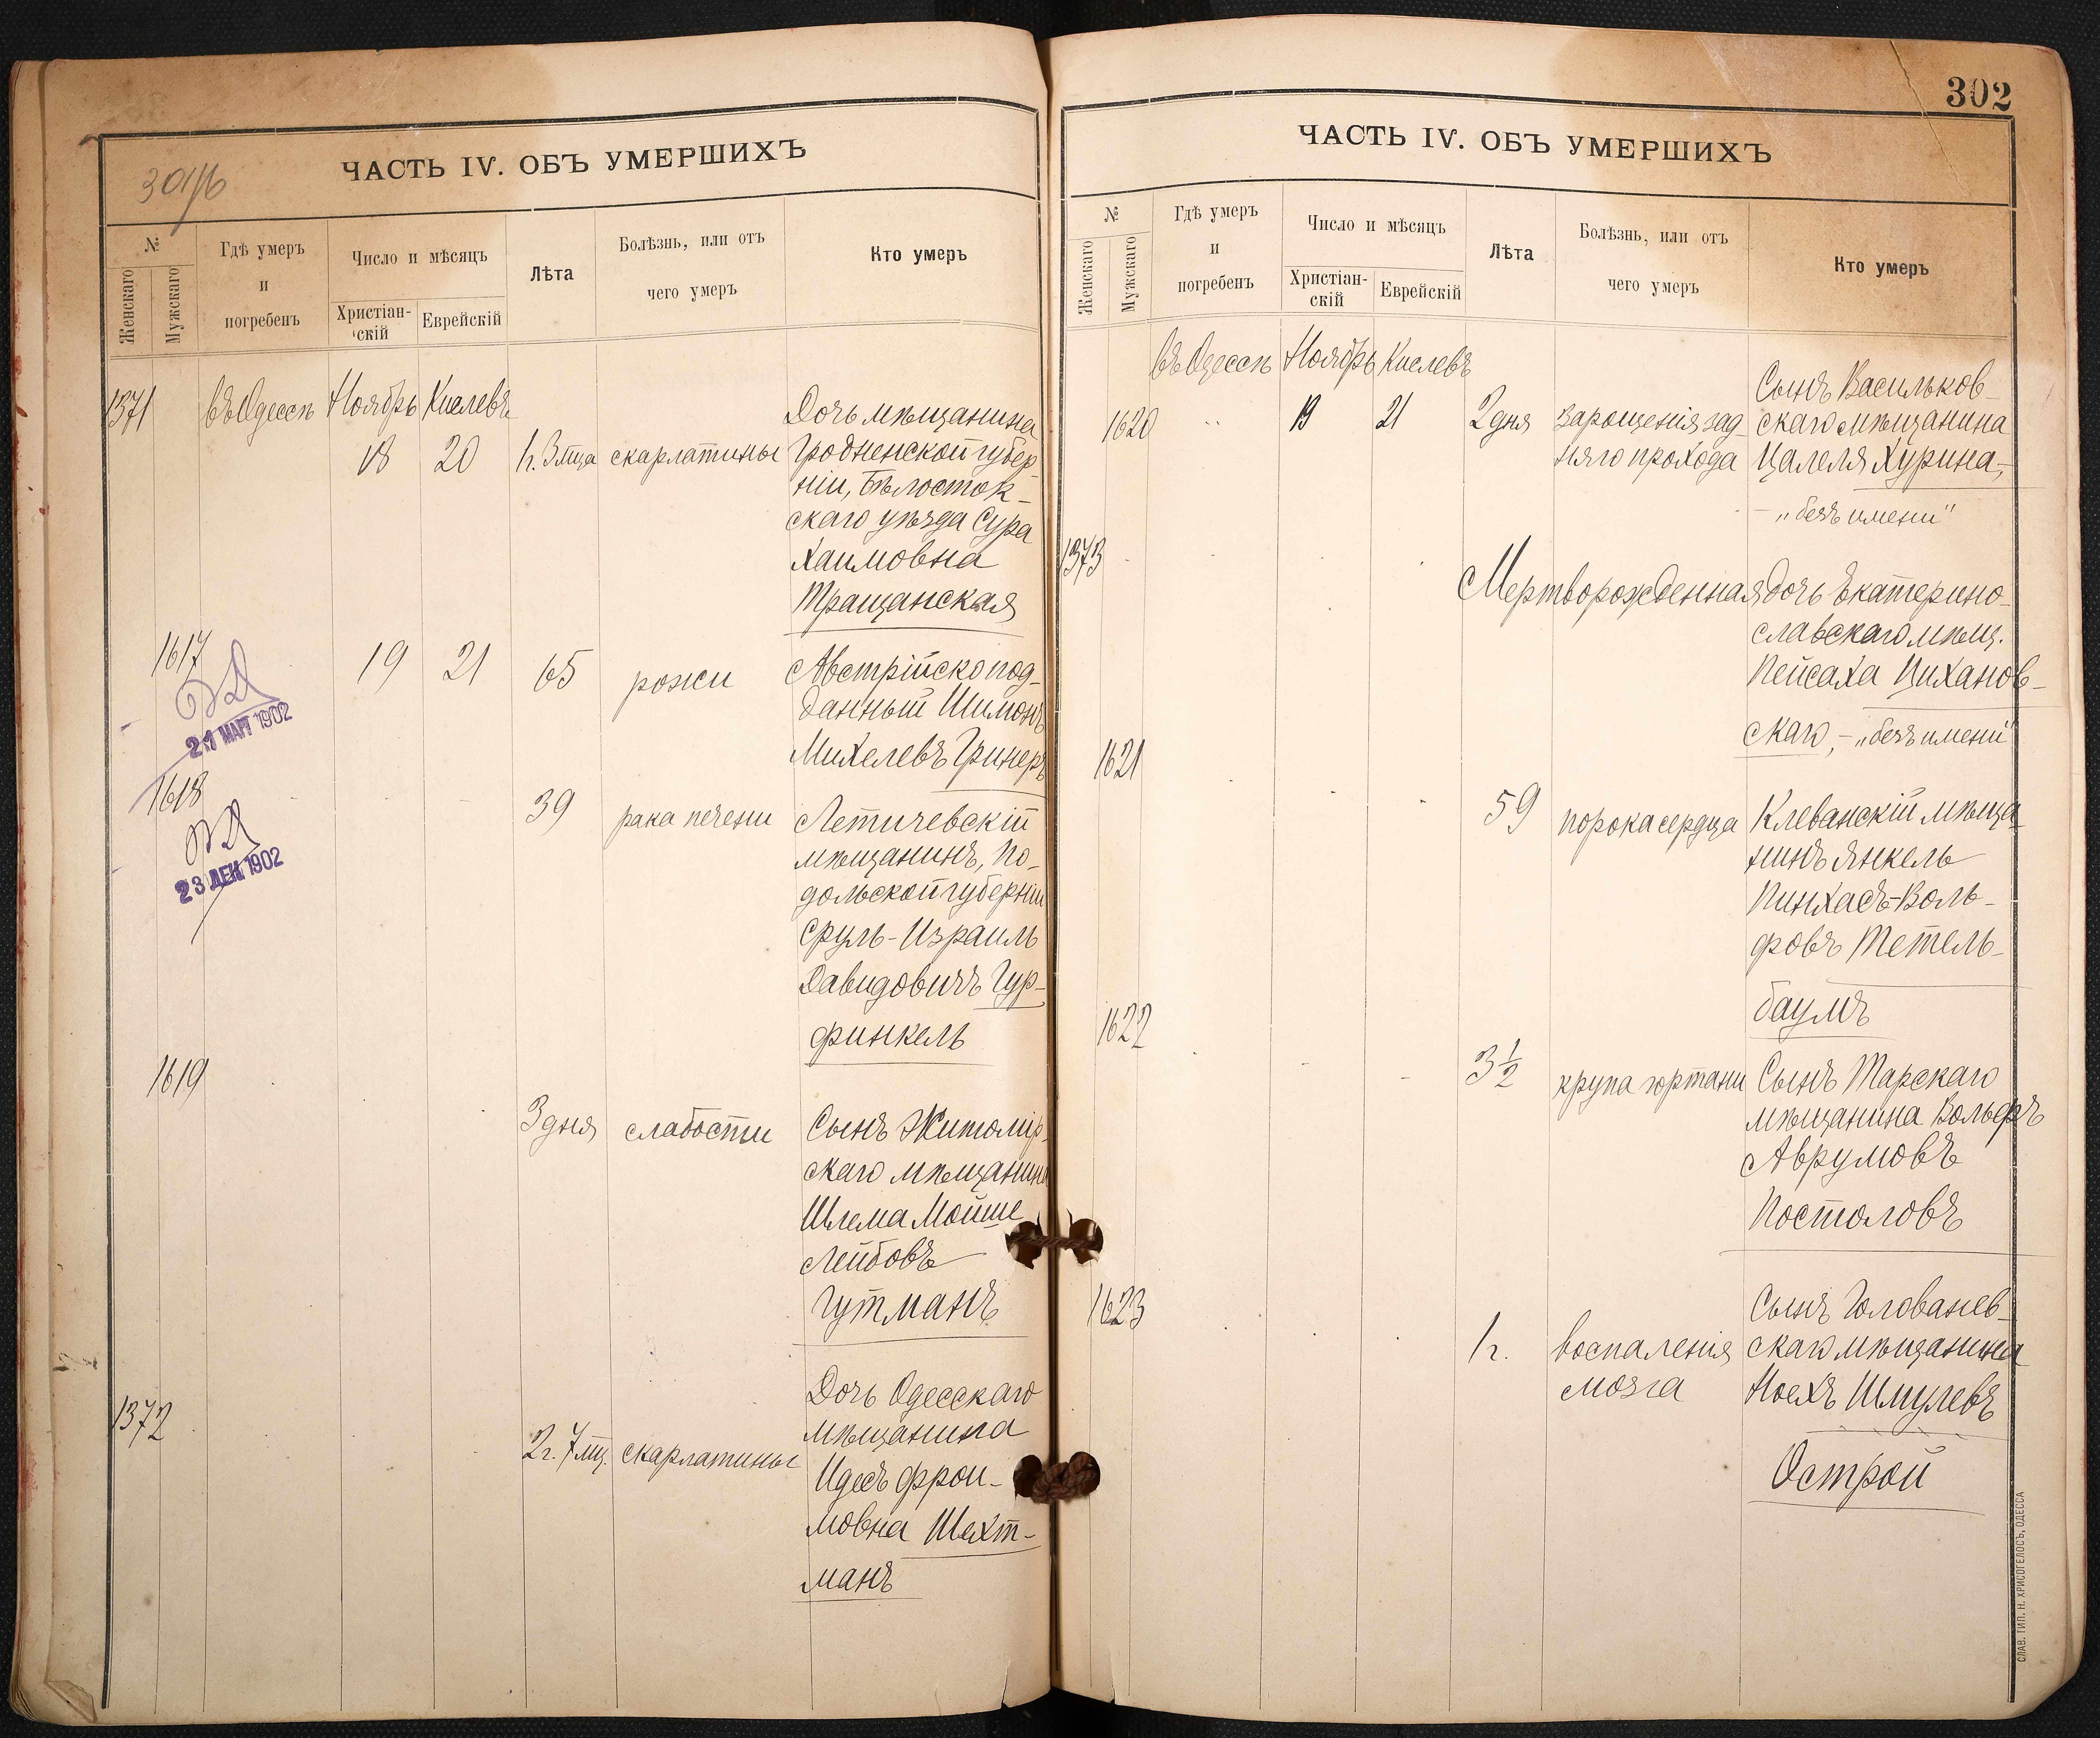 301/б
ЧАСТЬ IV. ОБЪ УМЕРШИХЪ
№
Женскаго
Мужскаго
Гдѣ умеръ
и
погребенъ
Число и мѣсяцъ
Христіан-
скій
Еврейскій
Лѣта
Болѣзнь, или отъ
чего умеръ
Кто умеръ
1371
въ Одессѣ
Ноябрь
Кислевъ
18
20
1г. 3 мца
скарлатины
Дочь мѣщанина
Гродненской губер
ніи, Бѣлосток-
скаго уѣзда Сура
Хаимовна
Тращанская
1617
21 МАРТ 1902
19
21
65
рожи
Австрійскопод-
данный Шимонъ
Михелевъ Гринеръ
1618
23 ДЕК 1902
39
рака печени
Летичевскій
мѣщанинъ, По-
дольской губерніи
Сруль-Израиль
Давидовичъ Гур-
финкель
1619
3 дня
слабости
Сынъ Житомір-
скаго мѣщанина
Шлема Мойше
Лейбовъ
Гутманъ
1372
2г. 7 мц.
скарлатины
Дочь Одесскаго
мѣщанина
Идесъ Фрои-
мовна Шехт-
манъ
302
ЧАСТЬ IV. ОБЪ УМЕРШИХЪ
№
Женскаго
Мужскаго
Гдѣ умеръ
и
погребенъ
Число и мѣсяцъ
Христіан-
скій
Еврейскій
Лѣта
Болѣзнь, или отъ
чего умеръ
Кто умеръ
въ Одессѣ
Ноябрь
Кислевъ
1620
19
21
2 дня
заращенія зад-
няго прохода
Сынъ Васильков-
скаго мѣщанина
Цалеля Хурина,-
- „безъ имени"
1373
Мертворожденная
дочь Екатерино-
славскаго мѣщ.
Пейсаха Циханов-
скаго, - „безъ имени"
1621
59
порока сердца
Клеванскій мѣща
нинъ Янкель
Пинхасъ-Воль-
фовъ Тетель-
баумъ
1622
3 1/2
крупа гортани
Сынъ Тарскаго
мѣщанина Вольфъ
Аврумовъ
Постоловъ
1623
1г.
воспаленія
мозга
Сынъ Голованев-
скаго мѣщанина
Ноехъ Шмулевъ
Острой
СЛАВ. ТИП. Н. ХРИСОГЕЛОСЪ, ОДЕССА